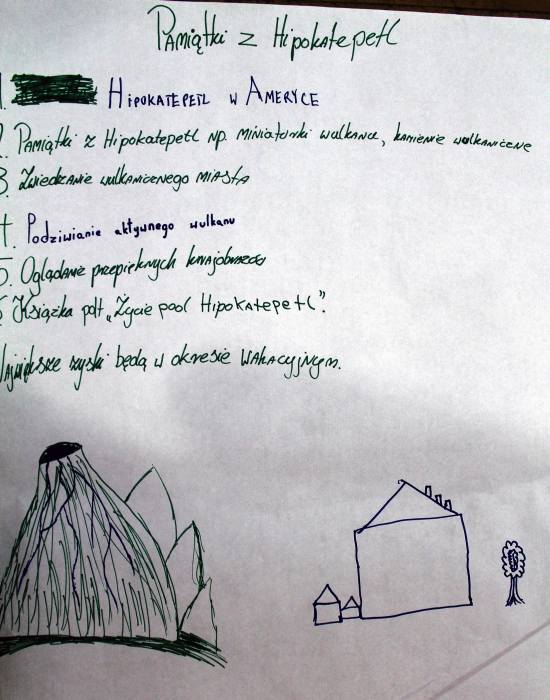 Pamiątki z Hipokatepetl
1. Hipokatepetl w Ameryce
2. Pamiątki z Hipokatepetl np. miniaturki wulkanu, kamienie wulkaniczne
3. Zwiedzanie wulkanicznego miasta
4. Podziwianie aktywnego wulkanu
5. Oglądanie przepięknych krajobrazów
6. Książka pdt „Życie pod Hipokatepetl".
Największe zyski będą w okresie wakacyjnym.